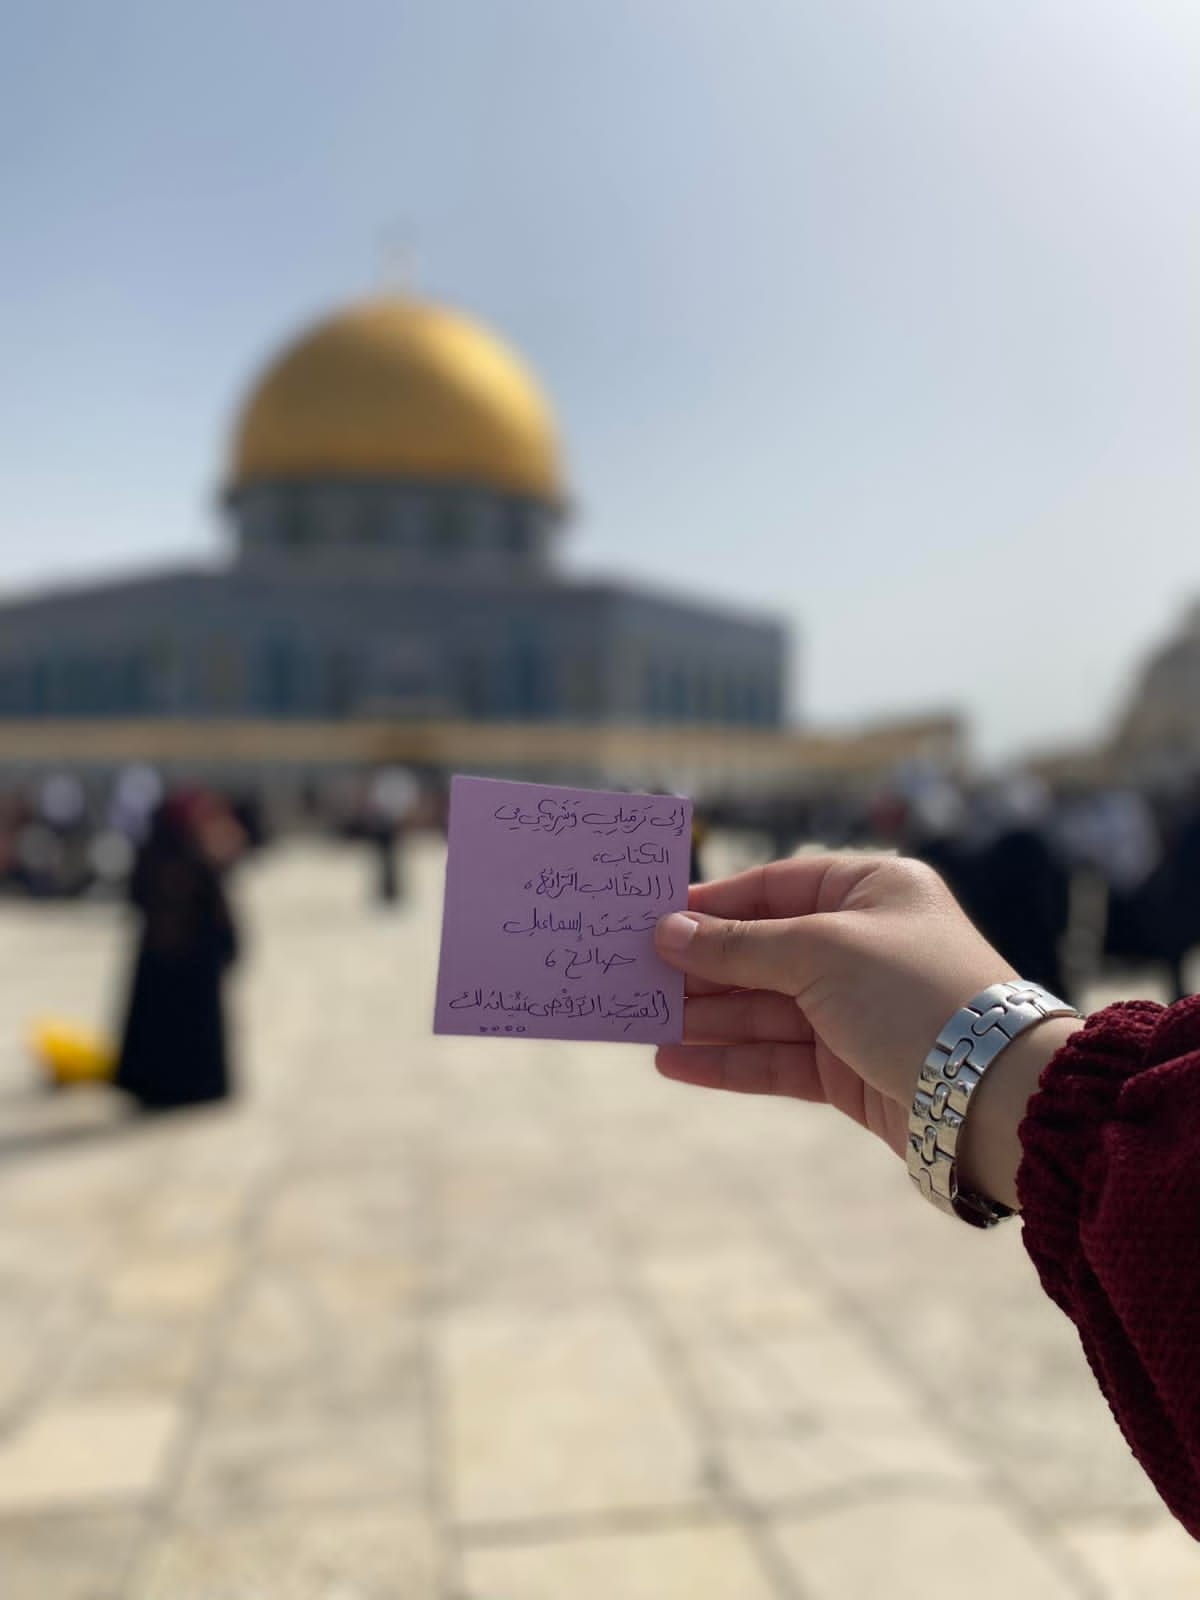 إلى زميلي وَشريكي في
الكتاب،
الكاتب الرائع،
حَسَن إسماعيل
صالح،
المَسْجِد الأَقْصى مشتاق لك
....